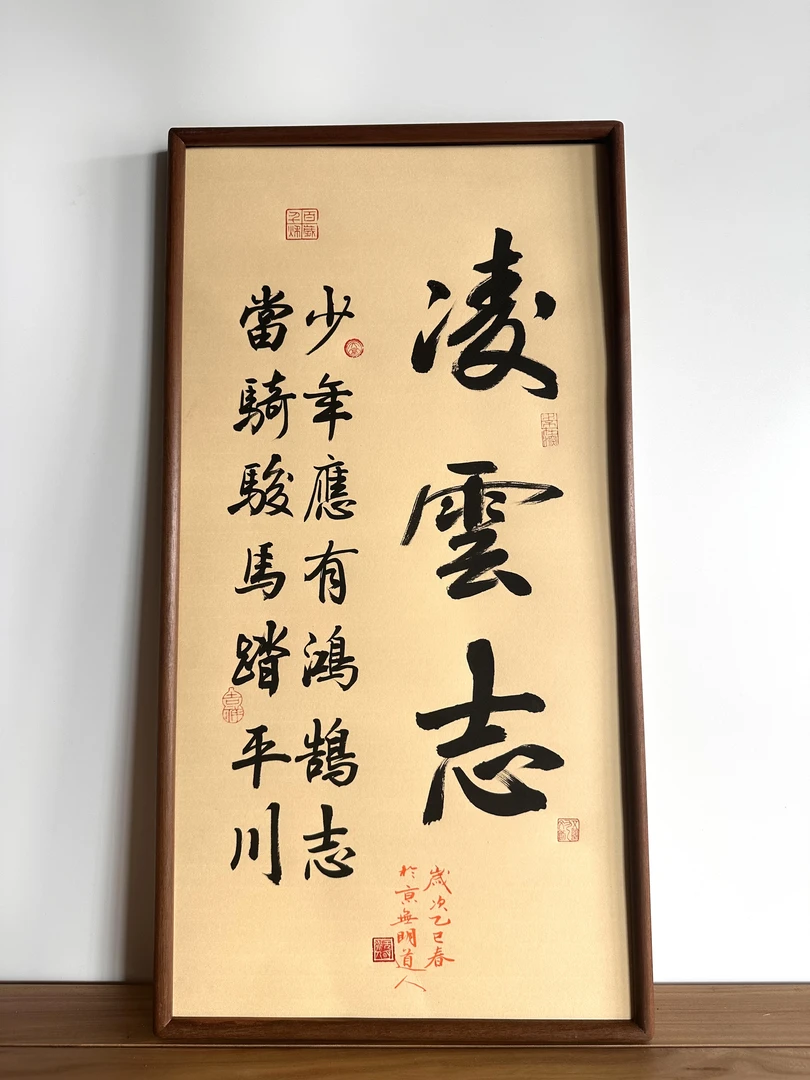 凌雲志
少年應有鴻鵠志
當騎駿馬踏平川
歲次乙巳春
於京無明道人
吉祥